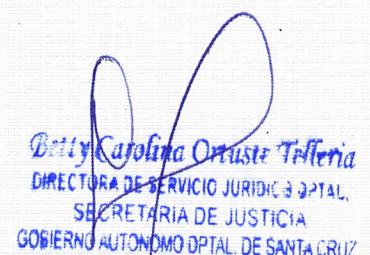 Betty Carolina Ortuste Telleria
DIRECTORA DE SERVICIO JURIDICO DPTAL.
SECRETARIA DE JUSTICIA
GOBIERNO AUTONOMO DPTAL. DE SANTA CRUZ